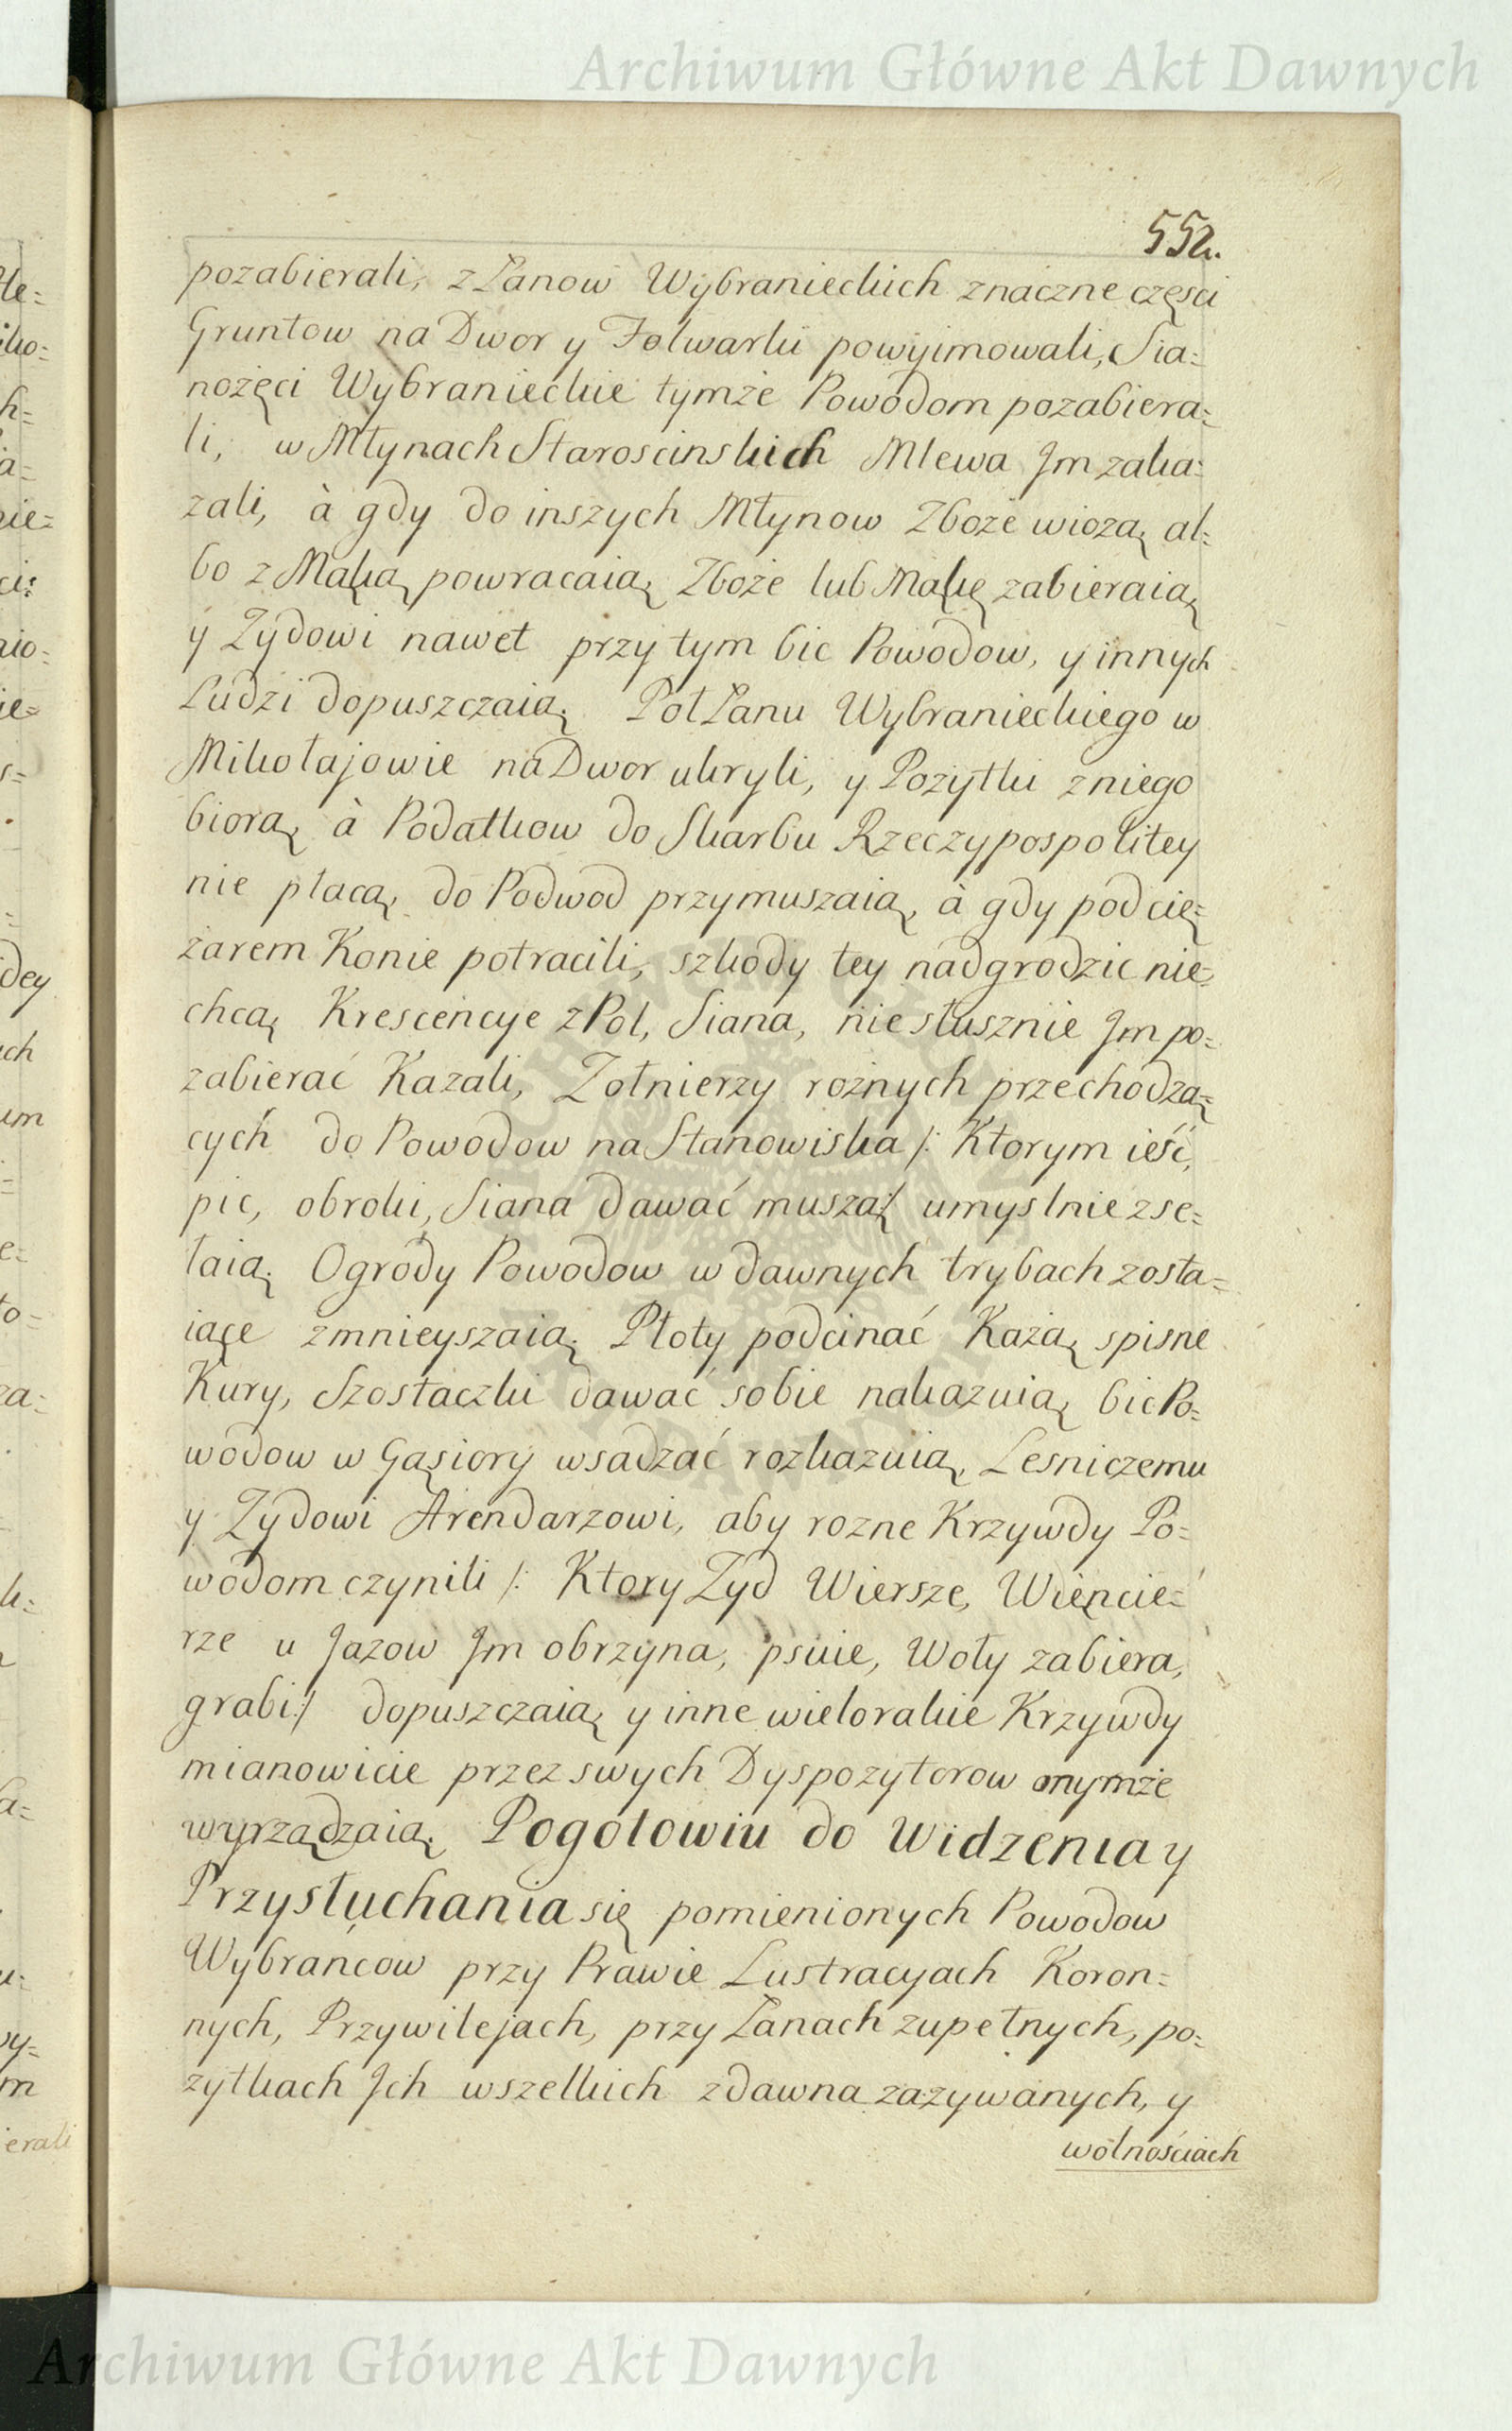 Archiwum Główne Akt Dawnych
552.
pozabierali, z Łanow Wybranieckich znaczne części
Gruntow na Dwor y Folwarki powyimowali, Sia=
nożęci Wybranieckie tymże Powodom pozabiera=
li, w Młynach Staroscinskich Mlewa Jm zaka=
zali, à gdy do inszych Młynow Zboże wiozą al=
bo z Mąką powracaią Zboże lub Mąkę zabieraią
y Zydowi nawet przy tym bic Powodow, y innych
Ludzi dopuszczaią. Poł Łanu Wybranieckiego w
Mikołajowie na Dwor ukryli, y Pożytki z niego
biorą à Podatkow do Skarbu Rzeczypospolitey
nie płacą, do Podwod przymuszaią, à gdy pod cię=
żarem Konie potracili, szkody tey nadgrodzic nie
chcą Krescencye z Pol, Siana, niesłusznie Jm po=
zabierać Kazali, Zołnierzy rożnych przechodzą=
cych do Powodow na Stanowiska /: Ktorym ieść,
pic, obroki, Siana dawać muszą :/ umyslnie zse=
łaią. Ogrody Powodow w dawnych trybach zosta=
iące zmnieyszaią. Płoty podcinać Każą spisne
Kury, Szostaczki dawać sobie nakazuią bic Po=
wodow w Gąsiory wsadzać rozkazuią, Lesniczemu
y Zydowi Arendarzowi, aby rozne Krzywdy Po=
wodom czynili /: Ktory Zyd Wiersze, Więcie=
rze u Jazow Jm obrzyna, psuie, Woły zabiera,
grabi :/ dopuszczaią y inne wielorakie Krzywdy
mianowicie przez swych Dyspozytorow onymże
wyrządzaią. Pogotowiu do Widzenia y
Przysłuchania się pomienionych Powodow
Wybrańcow przy Prawie Lustracyach Koron=
nych, Przywilejach, przy Łanach zupełnych, po=
zytkach Jch wszelkich zdawna zazywanych, y
wolnościach
Archiwum Główne Akt Dawnych